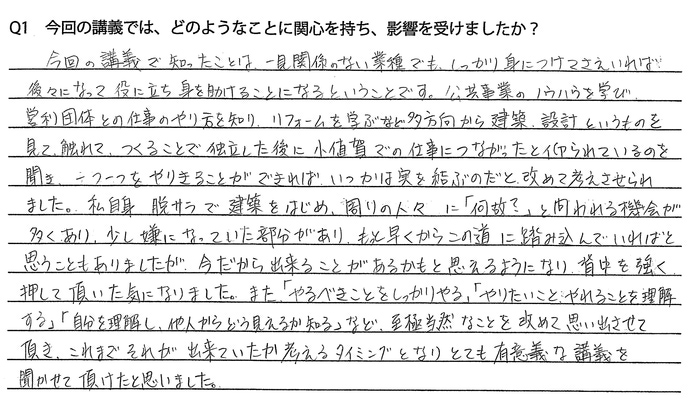 Q1　今回の講義では、どのようなことに関心を持ち、影響を受けましたか？
今回の講義で知ったことは、一見関係のない業種でも、しっかり身につけてさえいれば
後々になって役に立ち身を助けることになるということです。公共事業のノウハウを学び、
営利団体との仕事のやり方を知り、リフォームを学ぶなど多方向から建築、設計というものを
見て、触れて、つくることで独立した後に小値賀での仕事につながったと仰られているのを
聞き、一つ一つをやりきることができれば、いつかは実を結ぶのだと改めて考えさせられ
ました。私自身 脱サラで建築をはじめ、周りの人々に「何故？」と問われる機会が
多くあり、少し嫌になっていた部分があり、もっと早くからこの道に踏み込んでいればと
思うこともありましたが、今だから出来ることがあるかもと思えるようになり、背中を強く
押して頂いた気になりました。また「やるべきことをしっかりやる」「やりたいこと、やれることを理解
する」「自分を理解し、他人からどう見えるか知る」など、至極当然なことを改めて思い出させて
頂き、これまでそれが出来ていたか考えるタイミングとなりとても有意義な講義を
聞かせて頂けたと思いました。